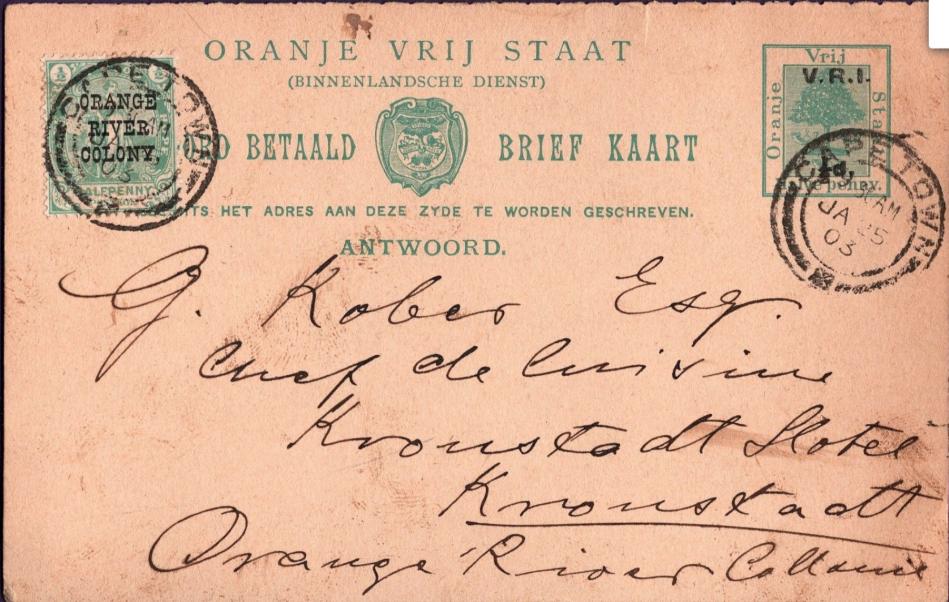 ORANJE VRIJ STAAT
(BINNENLANDSCHE DIENST)
½ ½
ORANGE
RIVER
COLONY,
HALFPENNY
CAPE TOWN
03
BETAALD BRIEF KAART
Vrij
Oranje
V.R.I.
½d,
penny.
CAPE TOWN
AM
JA
03
HET ADRES AAN DEZE ZYDE TE WORDEN GESCHREVEN.
ANTWOORD.
G. Kober Esq.
Chef de Cuisine
Kronstadt Hotel
Kronstadt
Orange River Collonie